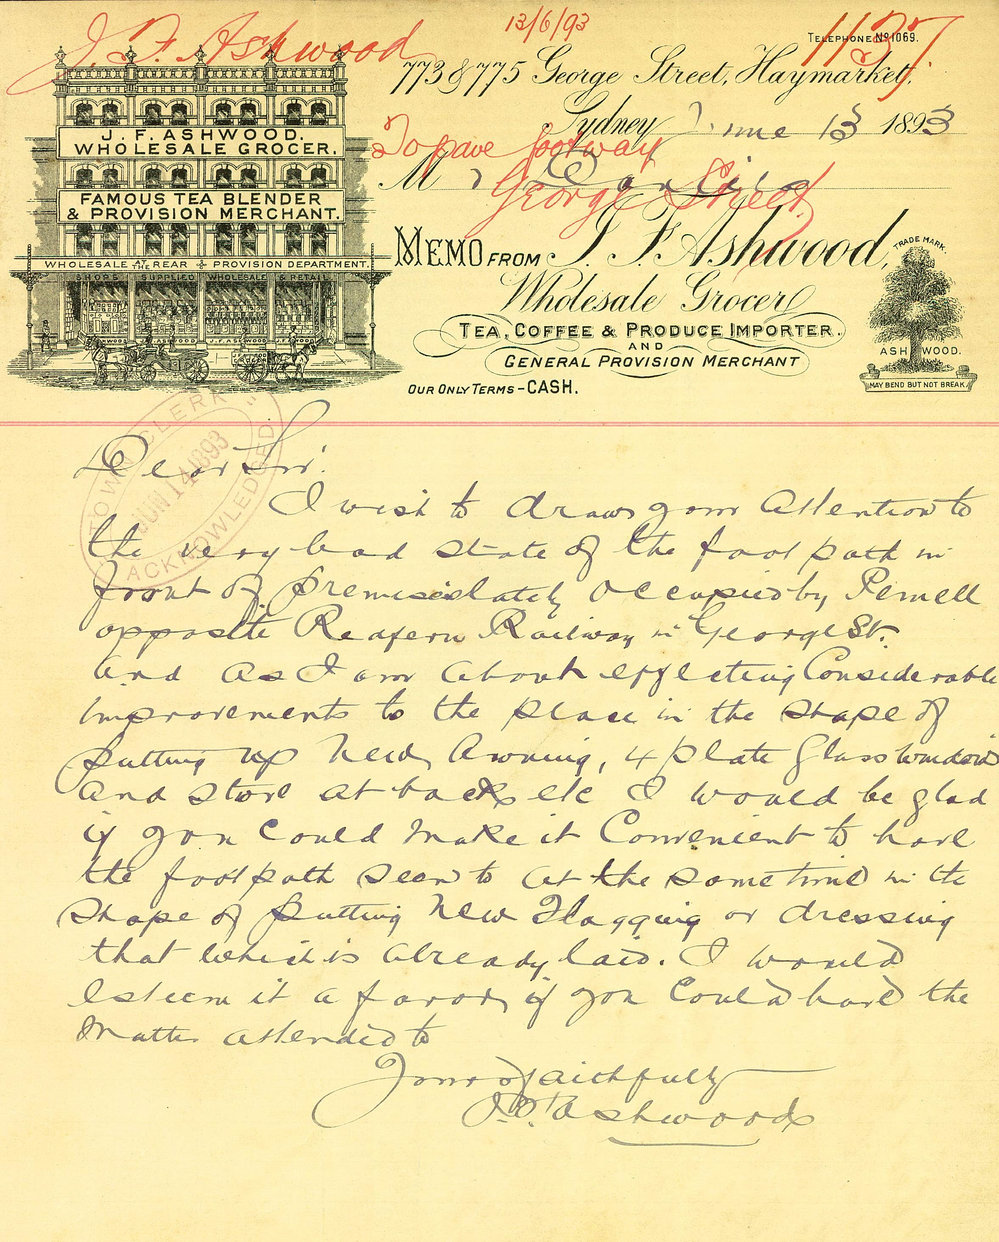 J. F. Ashwood
13/6/93
1137
TELEPHONE No 1069.
773 & 775 George Street, Haymarket,
Sydney June 13 1893
To pave footway
George Street
Mr
J. F. ASHWOOD.
WHOLESALE GROCER.
FAMOUS TEA BLENDER
& PROVISION MERCHANT.
WHOLESALE AT THE REAR & PROVISION DEPARTMENT.
SHOPS SUPPLIED WHOLESALE & RETAIL
J.F. ASHWOOD
MEMO FROM J. F. Ashwood,
Wholesale Grocer
TEA, COFFEE & PRODUCE IMPORTER.
AND
GENERAL PROVISION MERCHANT
OUR ONLY TERMS - CASH.
TRADE MARK.
ASH WOOD.
MAY BEND BUT NOT BREAK
TOWN CLERK
JUN 14 1893
ACKNOWLEDGED
Dear Sir.
I wish to draw your attention to
the very bad state of the foot path in
front of premises lately occupied by Pemell
opposite Redfern Railway in George St.
and as I am about effecting Considerable
improvements to the place in the shape of
putting up New Awning, 4 plate Glass windows
and store at back etc I would be glad
if you could make it Convenient to have
the foot path seen to at the same time in the
shape of putting New Flagging or dressing
that which is already laid. I would
esteem it a favor, if you could have the
matter attended to
Yours faithfully
J. F. Ashwood